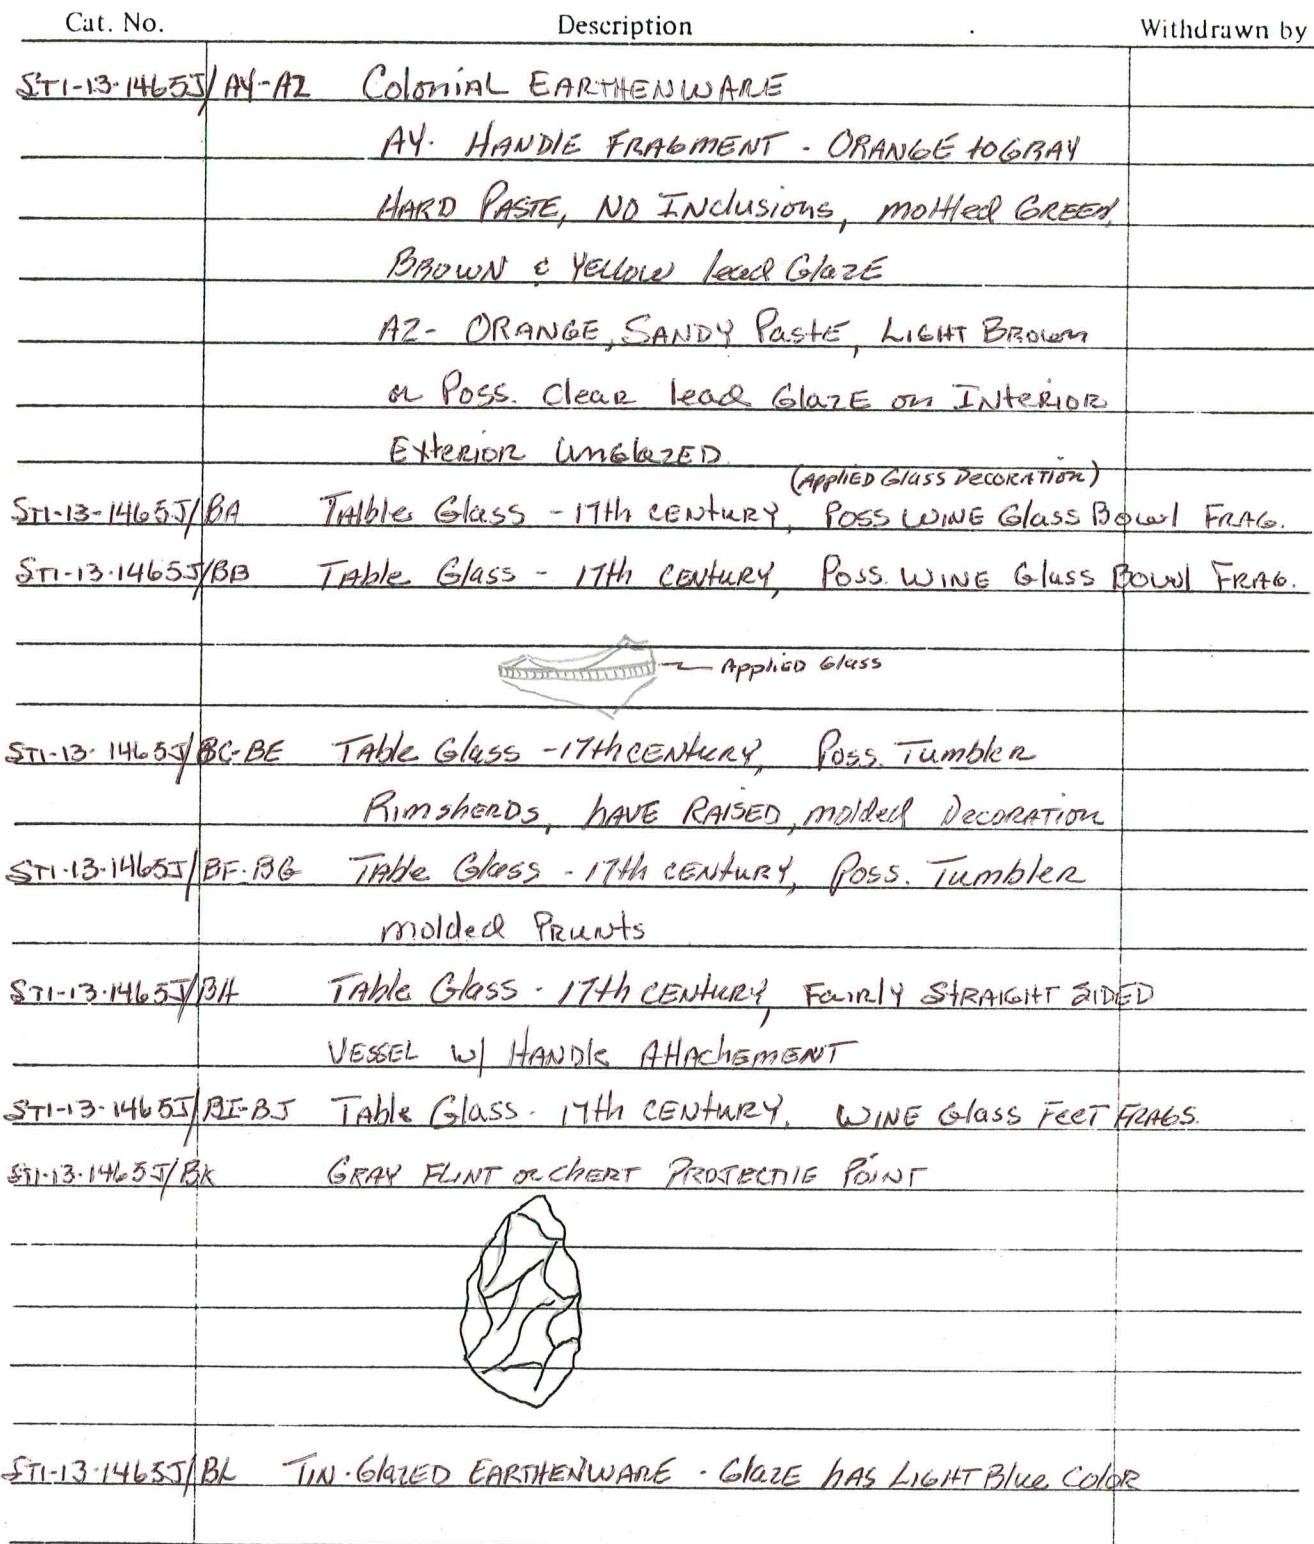 Cat. No. Description Withdrawn by
ST1-13-1465J/AY-AZ Colonial EARTHENWARE
AY. HANDLE FRAGMENT - ORANGE to GRAY
HARD PASTE, NO INClusions, mottled GREEN,
BROWN & YEllow lead GlazE
AZ- ORANGE, SANDY PastE, LIGHT BROWN
or Poss. Clear lead GlazE on INteRIOR
ExteRIOR UNGlazED
(Applied Glass DecoRATION)
ST1-13-1465J/BA TAlble Glass - 17th CENtURY, Poss WINE Glass Bowl FRAG.
ST1-13-1465J/BB TAble Glass - 17th CENtURY, Poss. WINE Glass Bowl FRAG.
Applied Glass
ST1-13-1465J/BC-BE TAble Glass - 17th CENtURY, Poss. Tumbler
RimsHERDS, hAVE RAISED, molded DecoRATION
ST1-13-1465J/BF-BG TAble Glass - 17th CENtURY, Poss. Tumbler
molded PRuNts
ST1-13-1465J/BH TAble Glass - 17th CENtURY, FairLy StRAIGHT SIDED
VESSEL w/ HANDle AttAchEMENT
ST1-13-1465J/BI-BJ TAble Glass - 17th CENtURY, WINE Glass FeeT FRAGS.
ST1-13-1465J/BK GRAY FLINT or ChERT PROJECTILE POINT
ST1-13-1465J/BL TIN-GlazED EARTHENWARE - GlazE hAS LIGHT Blue Color